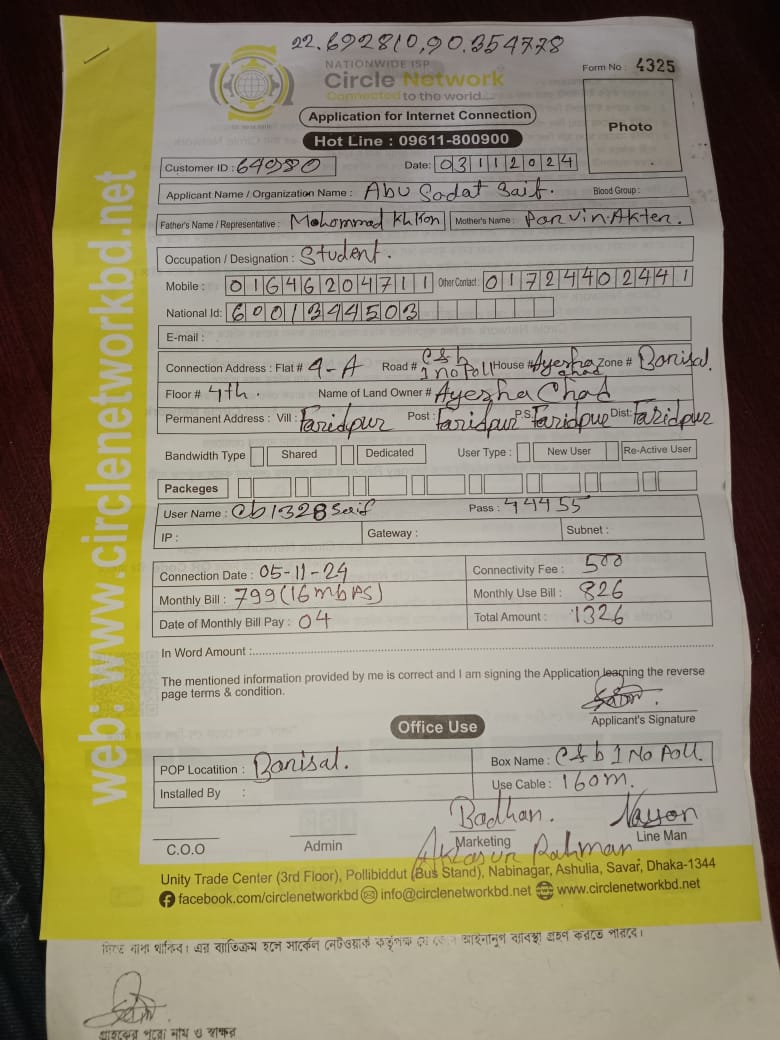 22.692810,90.354778
NATIONWIDE ISP
Circle Network
Connected to the world....
Form No : 4325
Application for Internet Connection
Photo
Hot Line : 09611-800900
Customer ID : 64980 Date: 03112024
Applicant Name / Organization Name : Abu Sadat Saif. Blood Group :
Father's Name / Representative : Mohommad Mother's Name : Parvin Akter.
Occupation / Designation : Student.
Mobile : 01646204711 Other Contact : 01724402441
National Id: 6001344503
E-mail :
Connection Address : Flat # 4-A Road # C&b 1 no Poll House # Ayesha Zone # Barisal.
Floor # 4th. Name of Land Owner # Ayesha Chad
Permanent Address : Vill : Faridpur Post : Faridpur P.S: Faridpur Dist: Faridpur
Bandwidth Type Shared Dedicated User Type : New User Re-Active User
Packeges
User Name : cb1328saif Pass : 44455
IP : Gateway : Subnet :
Connection Date : 05-11-24 Connectivity Fee : 500
Monthly Bill : 799 (16mbps) Monthly Use Bill : 826
Date of Monthly Bill Pay : 04 Total Amount : 1326
In Word Amount :
The mentioned information provided by me is correct and I am signing the Application learning the reverse
page terms & condition.
Applicant's Signature
Office Use
POP Locatition : Barisal. Box Name : C&b 1 No Poll.
Installed By : Use Cable : 160m.
Badhan. Nayon
C.O.O Admin Marketing Line Man
Rahman
Unity Trade Center (3rd Floor), Pollibiddut (Bus Stand), Nabinagar, Ashulia, Savar, Dhaka-1344
facebook.com/circlenetworkbd info@circlenetworkbd.net www.circlenetworkbd.net
web: www.circlenetworkbd.net
বাধ্য থাকিব। এর ব্যতিক্রম হলে সার্কেল নেটওয়ার্ক কর্তৃপক্ষ যে কোন আইনানুগ ব্যবস্থা গ্রহণ করতে পারবে।
গ্রাহকের পুরো নাম ও স্বাক্ষর